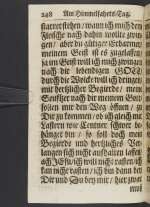 248 Am Himmelfahrts-Tag.
starret stehen / wann ich mich den
Flosche nach dahin wollte zwin-
gen / aber du gütiger Erbarmer /
meinem Geist ist es zugelassen
ja im Geist will ich mich zwingen
nach die lebendigen GOtt
durch die Wolcke will ich dringen
mit hertzlicher Begierde / mein
Seufftzer nach dir meinem Vor-
soll mir den Weg öffnen / zu
Dir zu kommen / ob ich gleich mit
Lastern wie Centner schwer be-
hänget bin / so soll doch mein
Begierde und hertzliches Ver-
langen sich nicht aufhalten lassen
ach JEsu / ich will nicht rasten / ich
kan nicht rasten / ich bin dann bey
Dir und Du bey mir / hier zwar